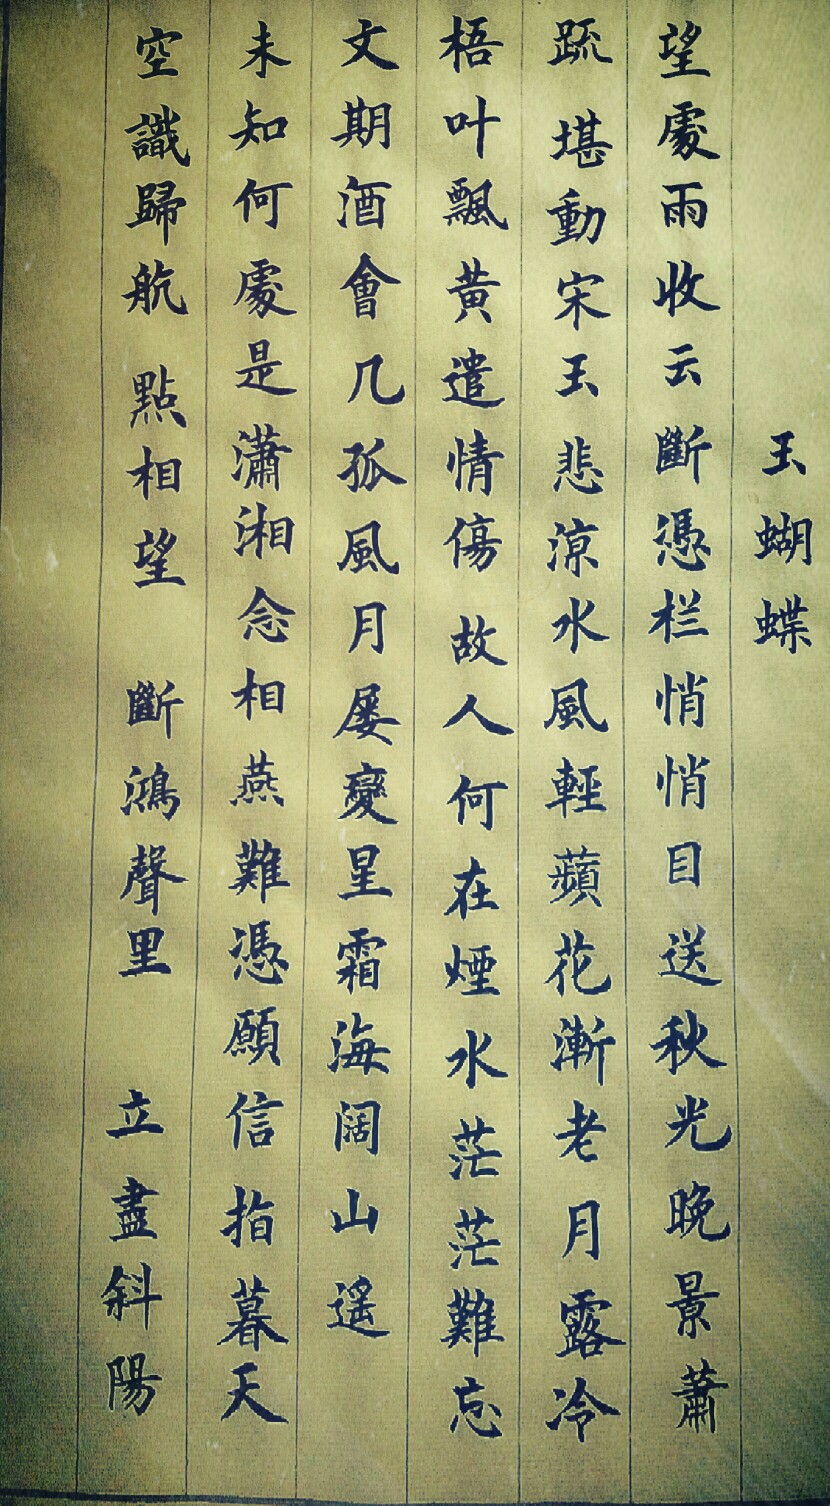 玉蝴蝶
望處雨收云斷憑栏悄悄目送秋光晚景蕭
疏堪動宋玉悲涼水風輕蘋花漸老月露冷
梧叶飄黃遣情傷故人何在煙水茫茫難忘
文期酒會几孤風月屡變星霜海阔山遥
未知何處是瀟湘念相燕難憑願信指暮天
空識歸航點相望斷鴻聲里立盡斜陽